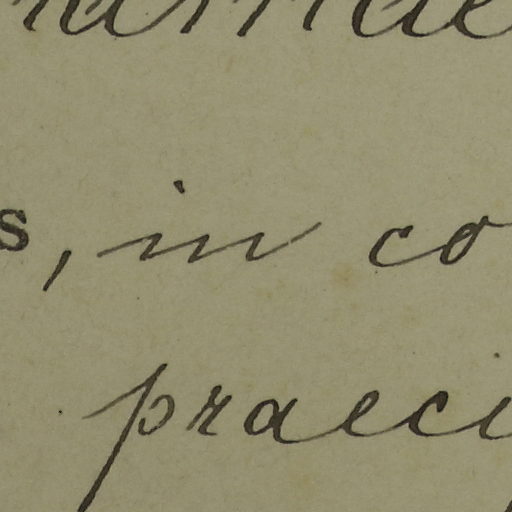 s, in co
praeci